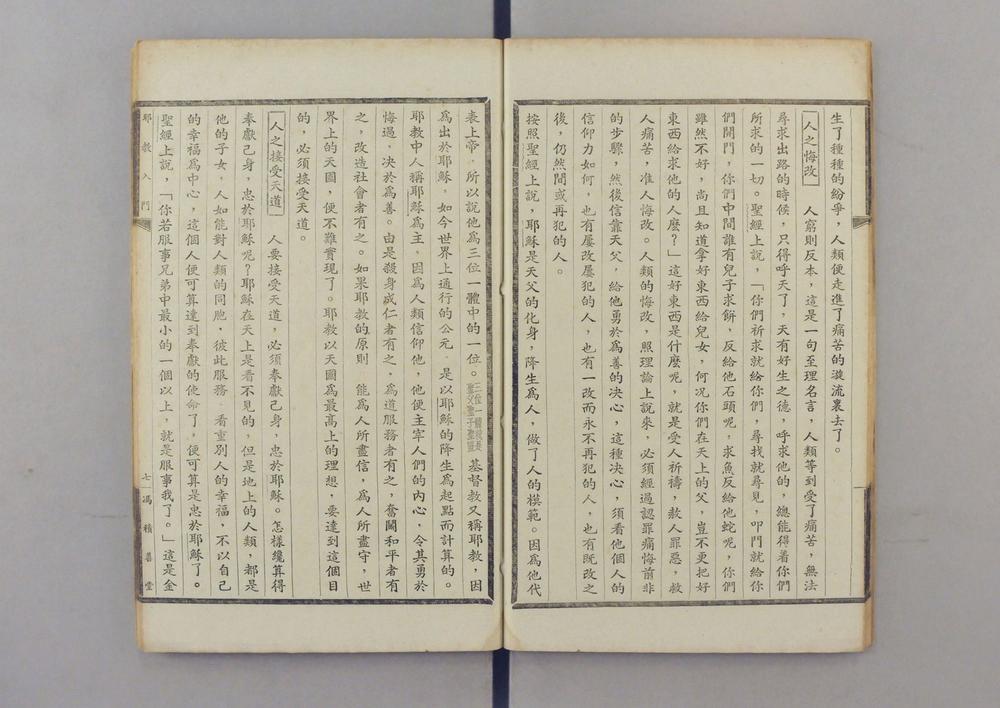 生了種種的紛爭，人類便走進了痛苦的漩流裏去了。
人之悔改　人窮則反本，這是一句至理名言，人類等到受了痛苦，無法
尋求出路的時候，只得呼天了，天有好生之德，呼求他的，總能得着你們
所求的一切。聖經上說，「你們祈求就給你們，尋找就尋見，叩門就給你
們開門，你們中間誰有兒子求餅，反給他石頭呢，求魚反給他蛇呢，你們
雖然不好，尚且知道拿好東西給兒女，何況你們在天上的父，豈不更把好
東西給求他的人麼？」這好東西是什麼呢，就是受人祈禱，赦人罪惡，救
人痛苦，准人悔改。人類的悔改，照理論上說來，必須經過認罪痛悔前非
的步驟，然後信靠天父，給他勇於為善的決心，這種決心，須看他個人的
信仰力如何，也有屢改屢犯的人，也有一改而永不再犯的人，也有既改之
後，仍然間或再犯的人。
按照聖經上說，耶穌是天父的化身，降生為人，做了人的模範。因為他代
表上帝，所以說他為三位一體中的一位。三位一體就是聖父聖子聖靈基督教又稱耶教，因
為出於耶穌，如今世界上通行的公元，是以耶穌的降生為起點而計算的。
耶教中人稱耶穌為主，因為人類信仰他，他便主宰人們的內心，令其勇於
悔過，决於為善。由是殺身成仁者有之，為道服務者有之，奮鬭和平者有
之，改造社會者有之。如果耶教的原則　能為人所盡信，為人所盡守，世
界上的天國，便不難實現了。耶教以天國為最高上的理想，要達到這個目
的，必須接受天道。
人之接受天道　人要接受天道，必須奉獻己身，忠於耶穌。怎樣纔算得
奉獻己身，忠於耶穌呢？耶穌在天上是看不見的，但是地上的人類，都是
他的子女，人如能對人類的同胞，彼此服務，看重別人的幸福，不以自己
的幸福為中心，這個人便可算達到奉獻的使命了，便可算是忠於耶穌了。
聖經上說，「你若服事兄弟中最小的一個以上，就是服事我了。」這是金
耶教入門　七　馮積善堂